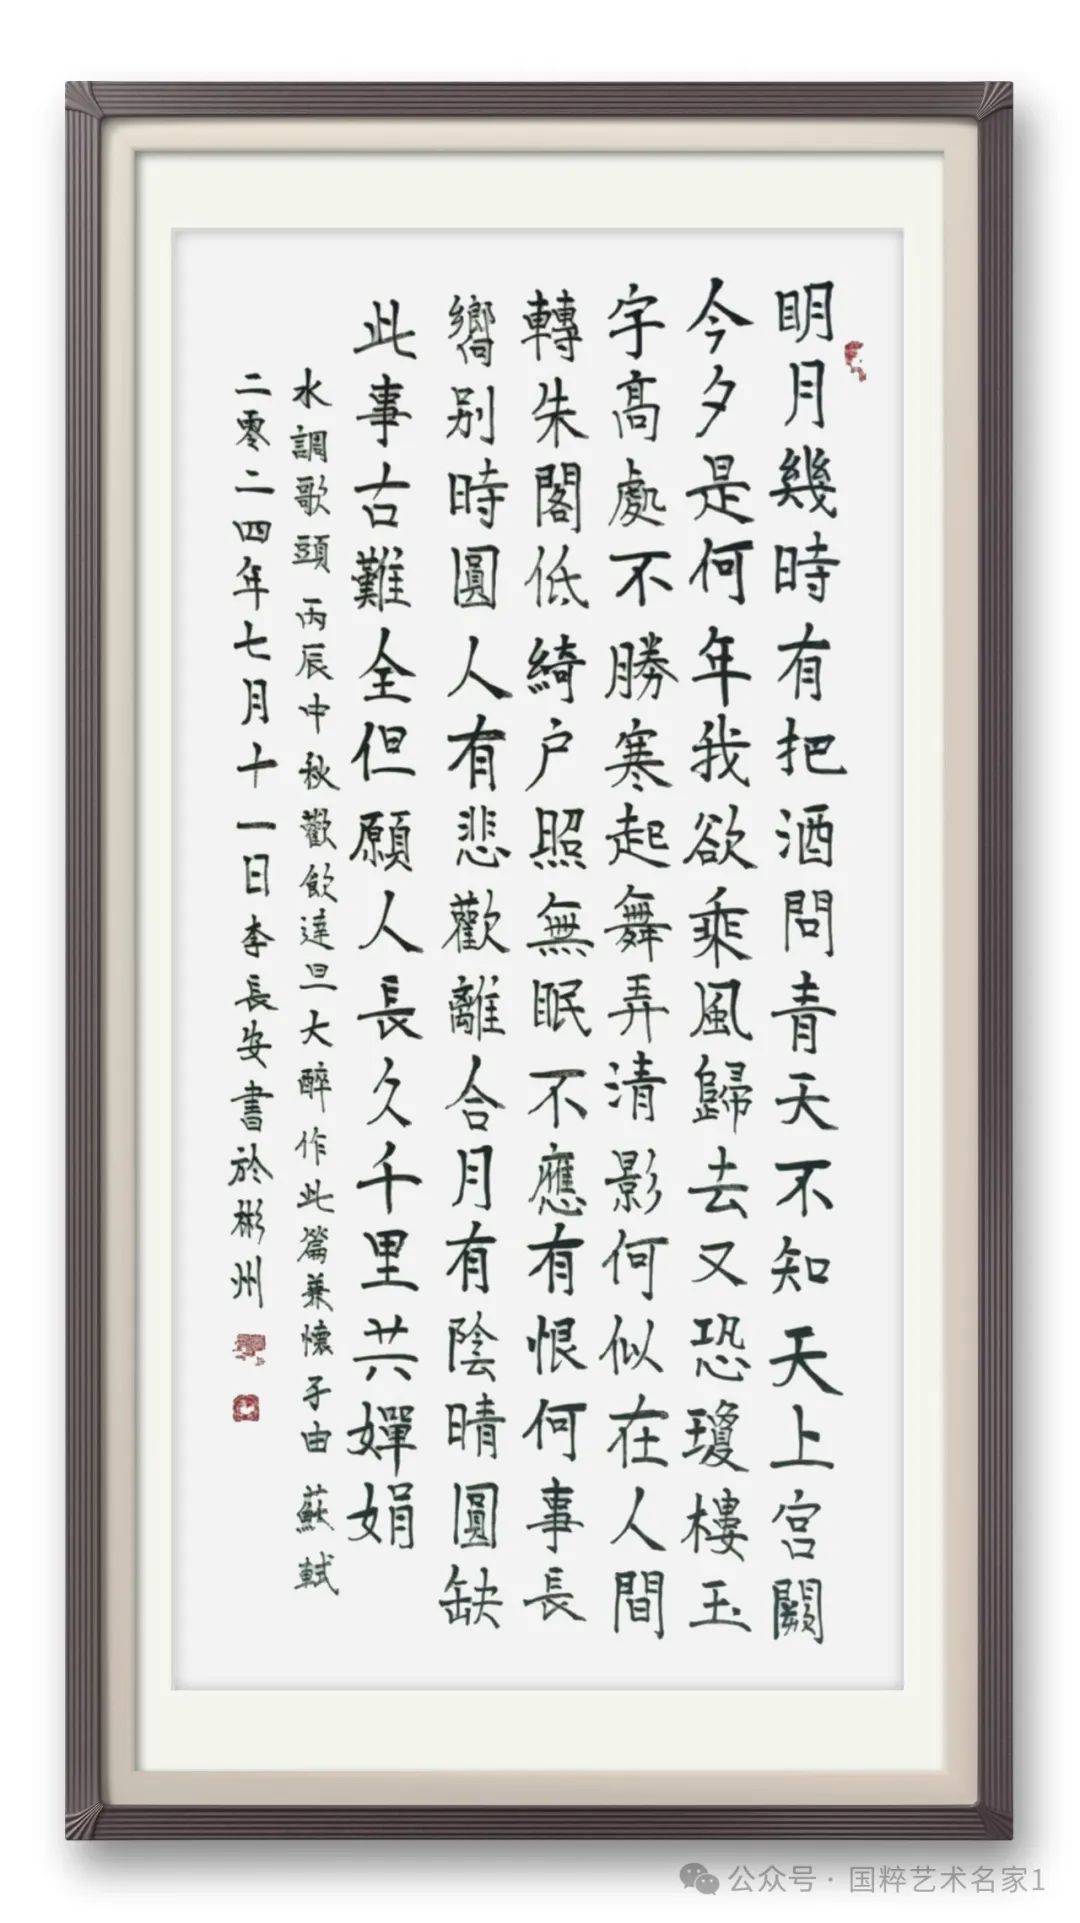 明月幾時有把酒問青天不知天上宮闕
今夕是何年我欲乘風歸去又恐瓊樓玉
宇高處不勝寒起舞弄清影何似在人間
轉朱閣低綺户照無眠不應有恨何事長
嚮别時圓人有悲歡離合月有陰晴圓缺
此事古難全但願人長久千里共嬋娟
水調歌頭 丙辰中秋歡飲達旦大醉作此篇兼懷子由 蘇軾
二零二四年七月十一日李長安書於彬州
公众号·国粹艺术名家1